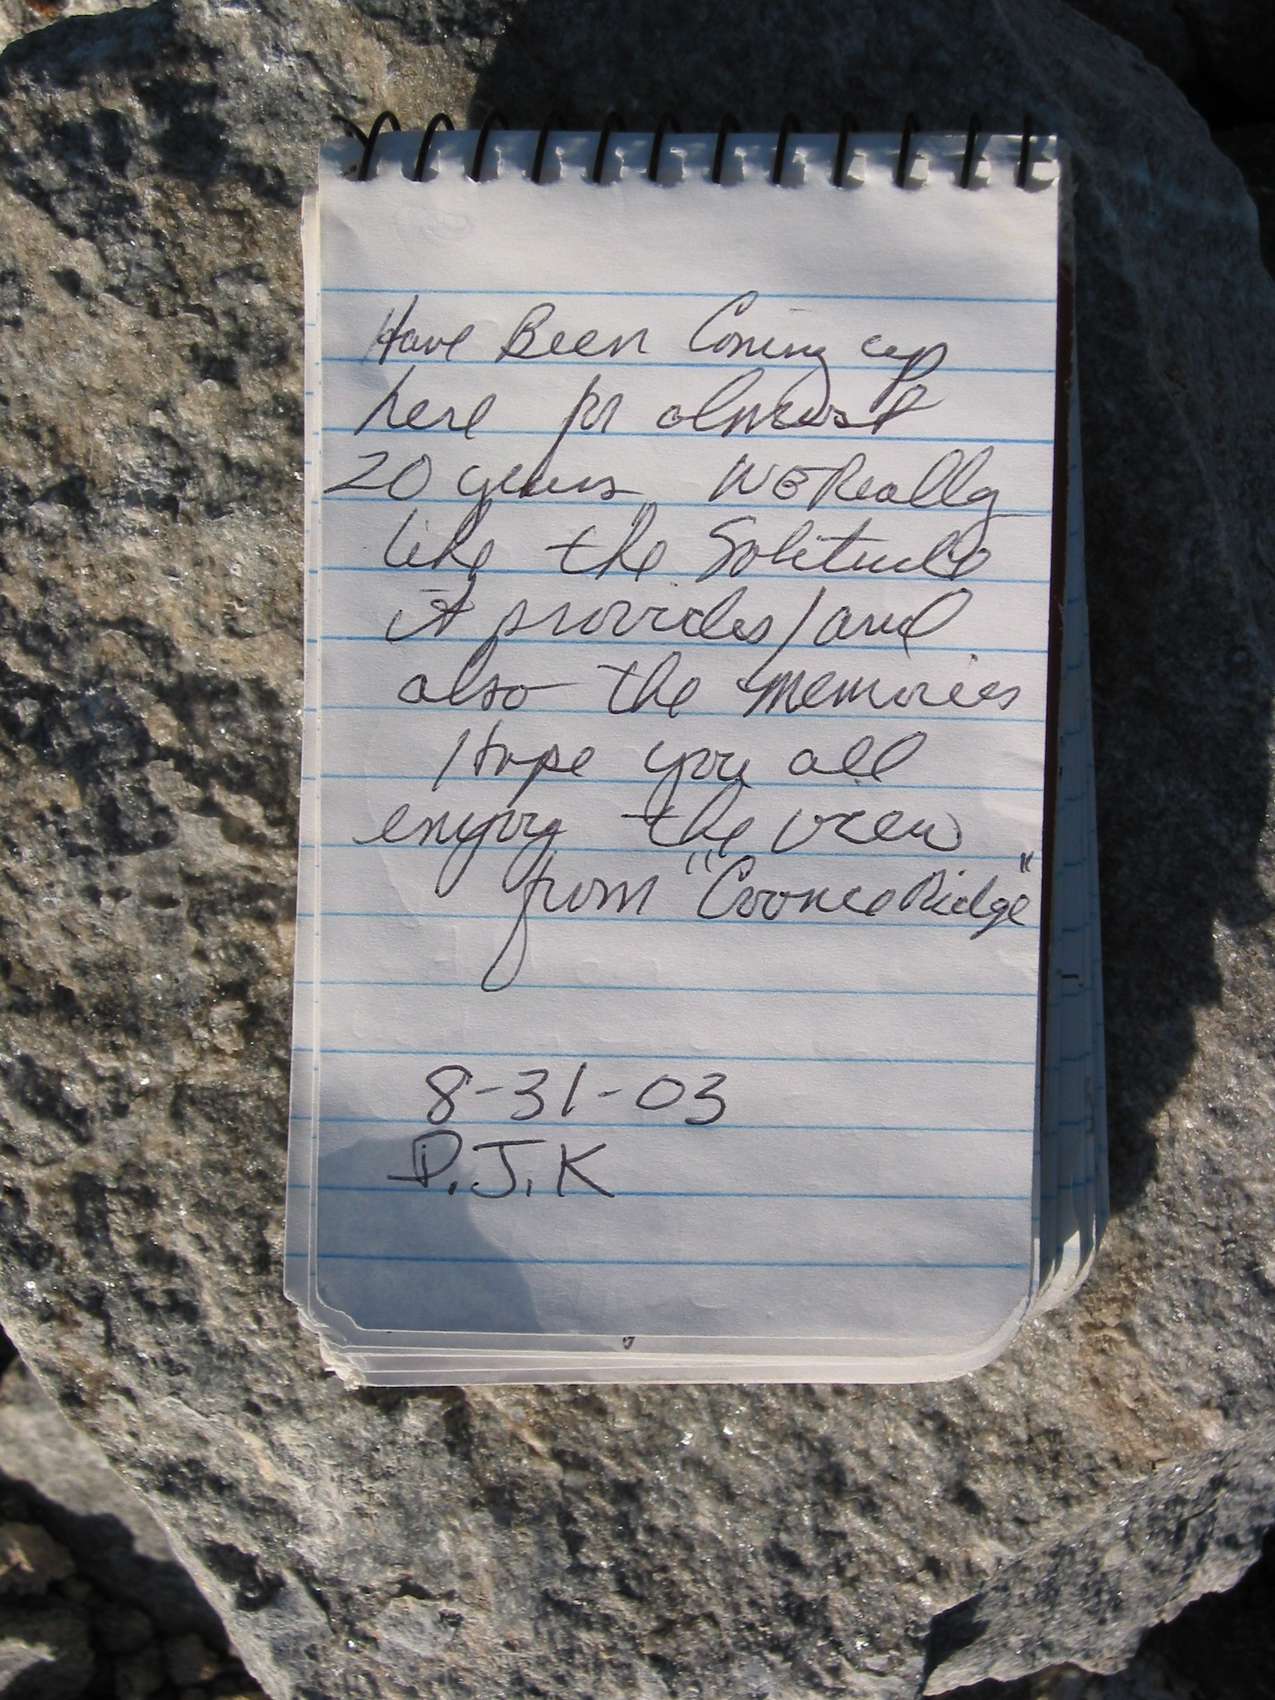 Have Been Coming up
here for almost
20 years. WE Really
like the Solitude
it provides / and
also the memories
Hope you all
enjoy the view
from "Coonce Ridge"
8-31-03
D.J.K